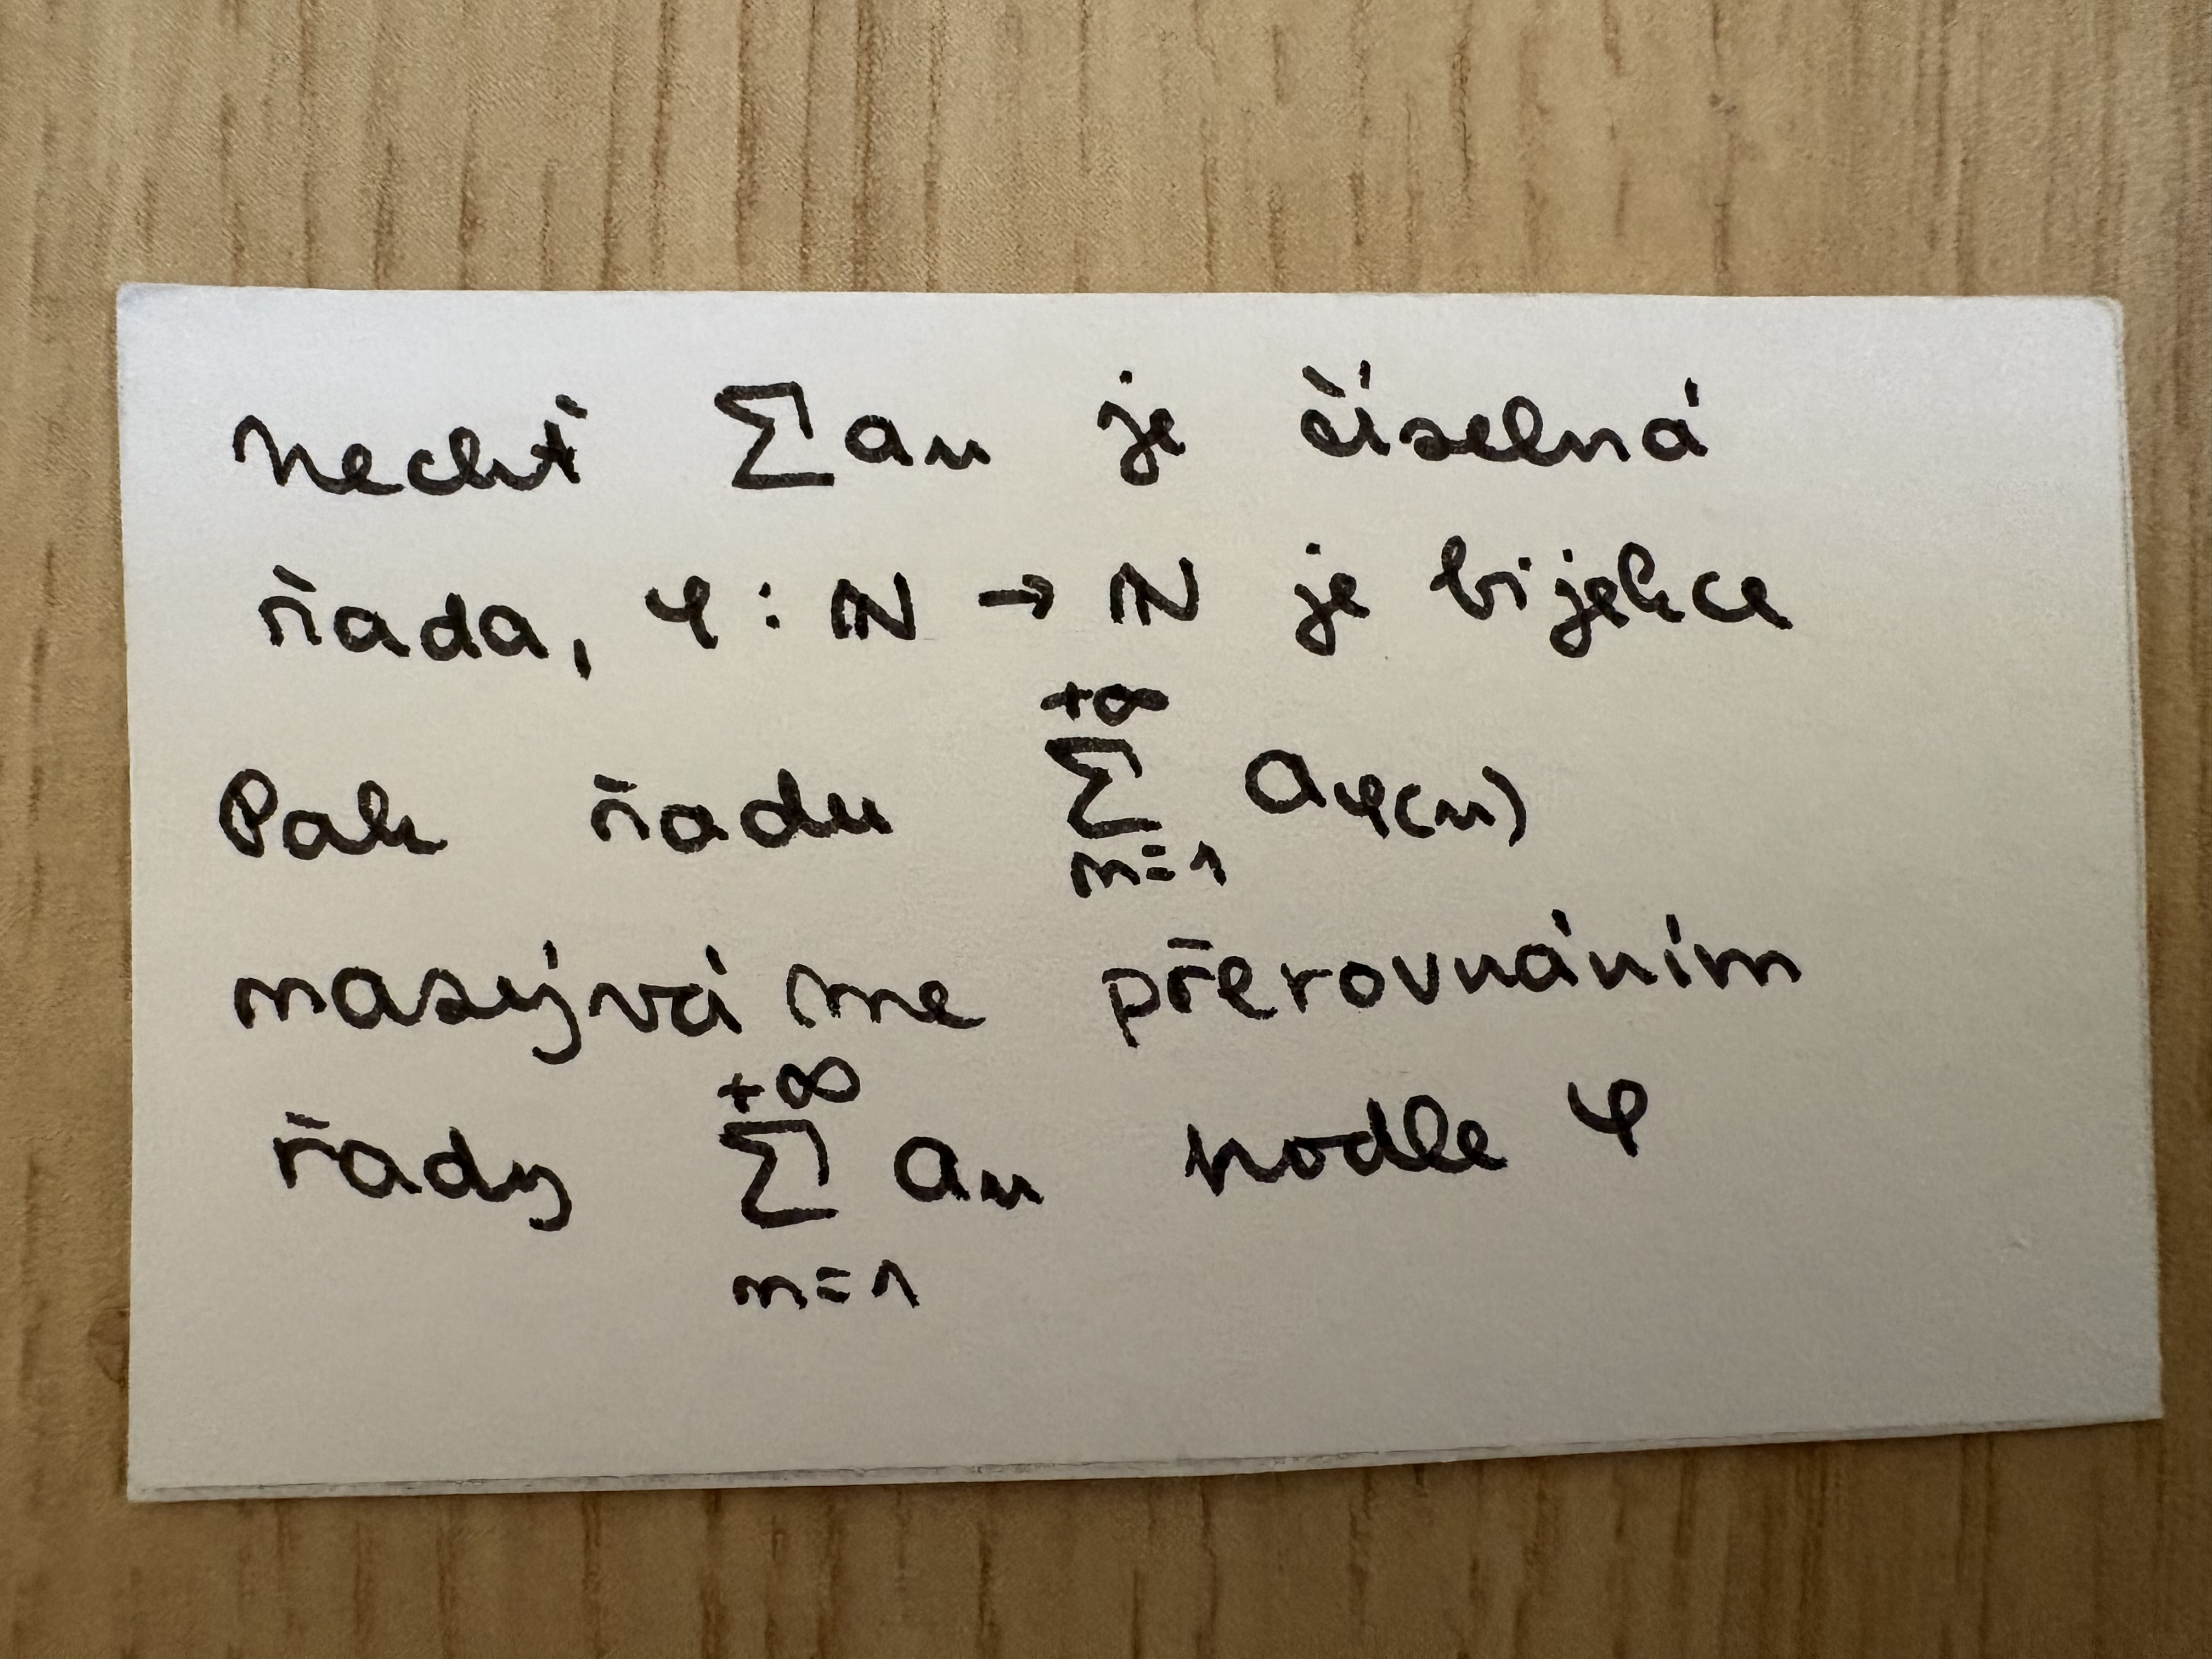 Nechť ∑ aₙ je číselná
řada, φ : ℕ → ℕ je bijekce
Pak řadu ∑_{n=1}^{+∞} a_{φ(n)}
nazýváme přerovnáním
řady ∑_{n=1}^{+∞} aₙ podle φ